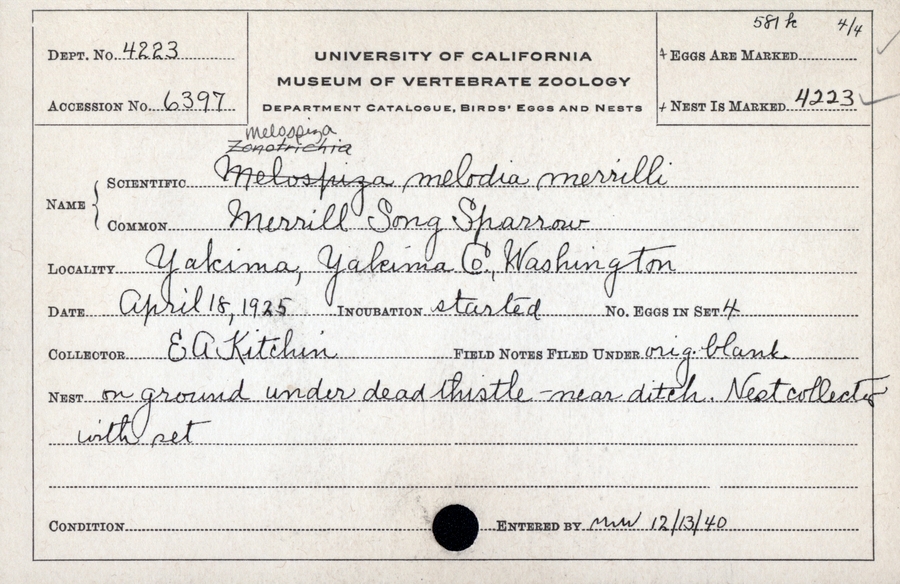 581 k 4/4
DEPT. NO. 4223
UNIVERSITY OF CALIFORNIA
EGGS ARE MARKED
MUSEUM OF VERTEBRATE ZOOLOGY
ACCESSION NO. 6397
DEPARTMENT CATALOGUE, BIRDS' EGGS AND NESTS
NEST IS MARKED 4223
Melospiza
Zonotrichia
NAME
SCIENTIFIC Melospiza melodia merrilli
COMMON Merrill Song Sparrow
LOCALITY Yakima, Yakima Co., Washington
DATE April 18, 1925 INCUBATION started NO. EGGS IN SET 4
COLLECTOR E A Kitchin FIELD NOTES FILED UNDER orig. blank
NEST on ground under dead thistle - near ditch. Nest collected
with set
CONDITION ENTERED BY 12/13/40